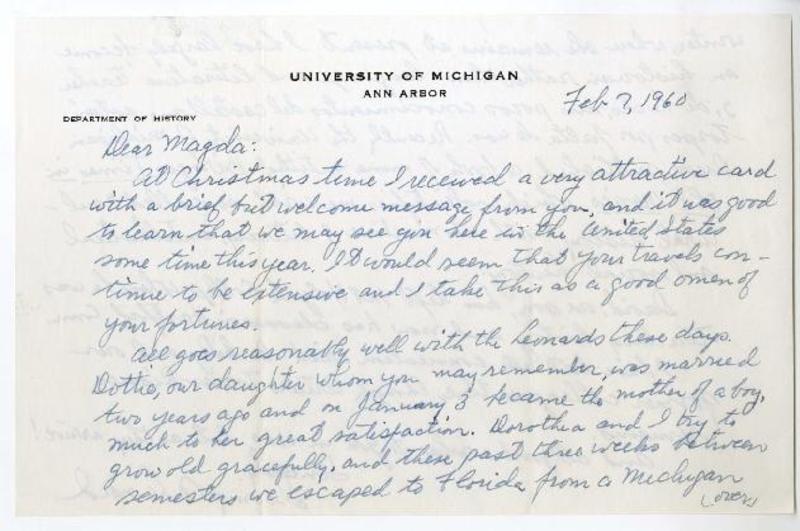 UNIVERSITY OF MICHIGAN
ANN ARBOR
DEPARTMENT OF HISTORY
Feb 7, 1960
Dear Magda:
At Christmas time I received a very attractive card
with a brief but welcome message from you, and it was good
to learn that we may see you here in the United States
some time this year. It would seem that your travels con-
tinue to be extensive and I take this as a good omen of
your fortunes.
All goes reasonably well with the Leonards these days.
Dottie, our daughter whom you may remember, was married
two years ago and on January 3 became the mother of a boy,
much to her great satisfaction. Dorothea and I try to
grow old gracefully, and these past three weeks between
semesters we escaped to Florida from a Michigan
(over)